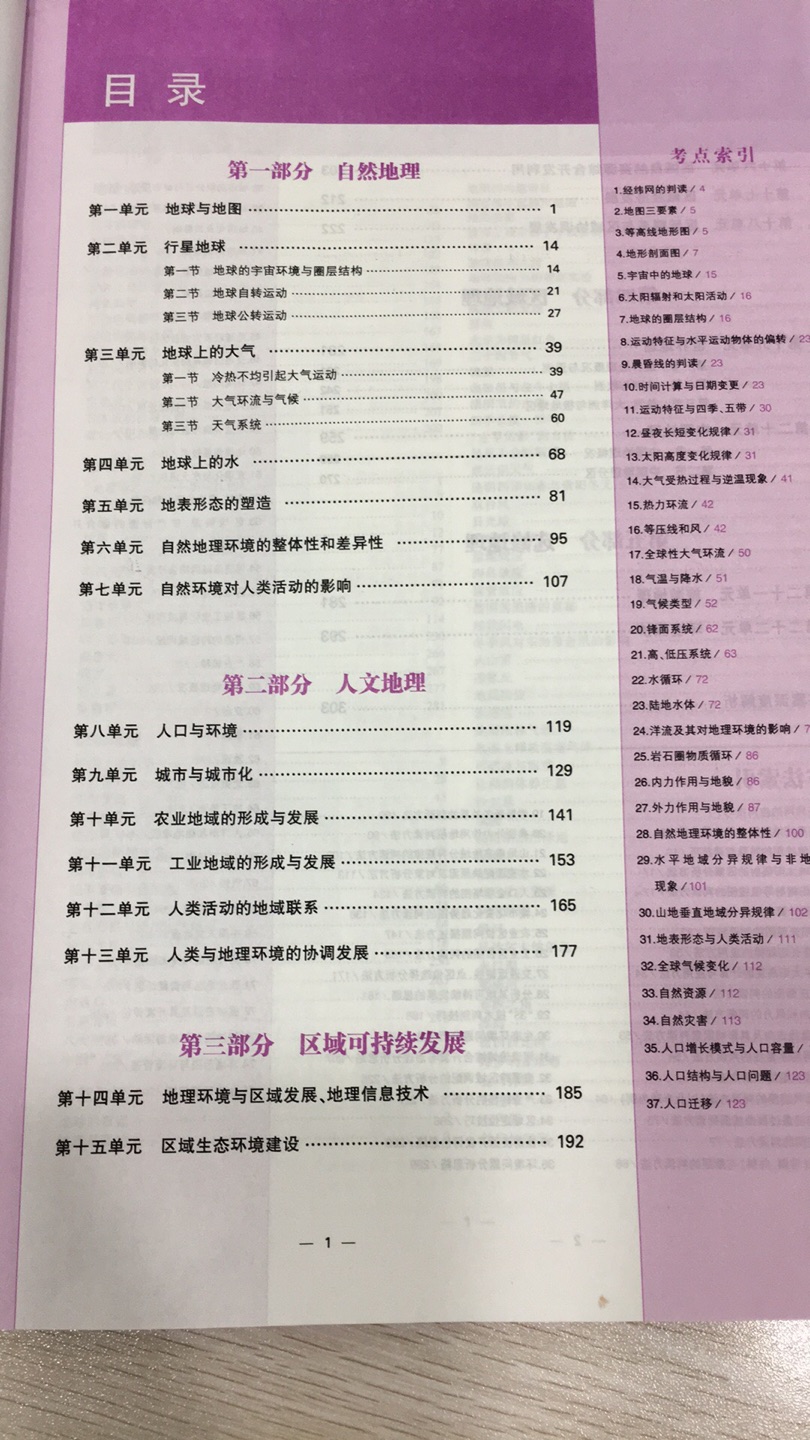 目 录
第一部分 自然地理
第一单元 地球与地图 ………………… 1
第二单元 行星地球 ………………… 14
第一节 地球的宇宙环境与圈层结构 ………………… 14
第二节 地球自转运动 ………………… 21
第三节 地球公转运动 ………………… 27
第三单元 地球上的大气 ………………… 39
第一节 冷热不均引起大气运动 ………………… 39
第二节 大气环流与气候 ………………… 47
第三节 天气系统 ………………… 60
第四单元 地球上的水 ………………… 68
第五单元 地表形态的塑造 ………………… 81
第六单元 自然地理环境的整体性和差异性 ………………… 95
第七单元 自然环境对人类活动的影响 ………………… 107
第二部分 人文地理
第八单元 人口与环境 ………………… 119
第九单元 城市与城市化 ………………… 129
第十单元 农业地域的形成与发展 ………………… 141
第十一单元 工业地域的形成与发展 ………………… 153
第十二单元 人类活动的地域联系 ………………… 165
第十三单元 人类与地理环境的协调发展 ………………… 177
第三部分 区域可持续发展
第十四单元 地理环境与区域发展、地理信息技术 ………………… 185
第十五单元 区域生态环境建设 ………………… 192
— 1 —
考点索引
1.经纬网的判读 / 4
2.地图三要素 / 5
3.等高线地形图 / 5
4.地形剖面图 / 7
5.宇宙中的地球 / 15
6.太阳辐射和太阳活动 / 16
7.地球的圈层结构 / 16
8.运动特征与水平运动物体的偏转 / 23
9.晨昏线的判读 / 23
10.时间计算与日期变更 / 23
11.运动特征与四季、五带 / 30
12.昼夜长短变化规律 / 31
13.太阳高度变化规律 / 31
14.大气受热过程与逆温现象 / 41
15.热力环流 / 42
16.等压线和风 / 42
17.全球性大气环流 / 50
18.气温与降水 / 51
19.气候类型 / 52
20.锋面系统 / 62
21.高、低压系统 / 63
22.水循环 / 72
23.陆地水体 / 72
24.洋流及其对地理环境的影响 / 7
25.岩石圈物质循环 / 86
26.内力作用与地貌 / 86
27.外力作用与地貌 / 87
28.自然地理环境的整体性 / 100
29.水平地域分异规律与非地
现象 / 101
30.山地垂直地域分异规律 / 102
31.地表形态与人类活动 / 111
32.全球气候变化 / 112
33.自然资源 / 112
34.自然灾害 / 113
35.人口增长模式与人口容量 /
36.人口结构与人口问题 / 123
37.人口迁移 / 123